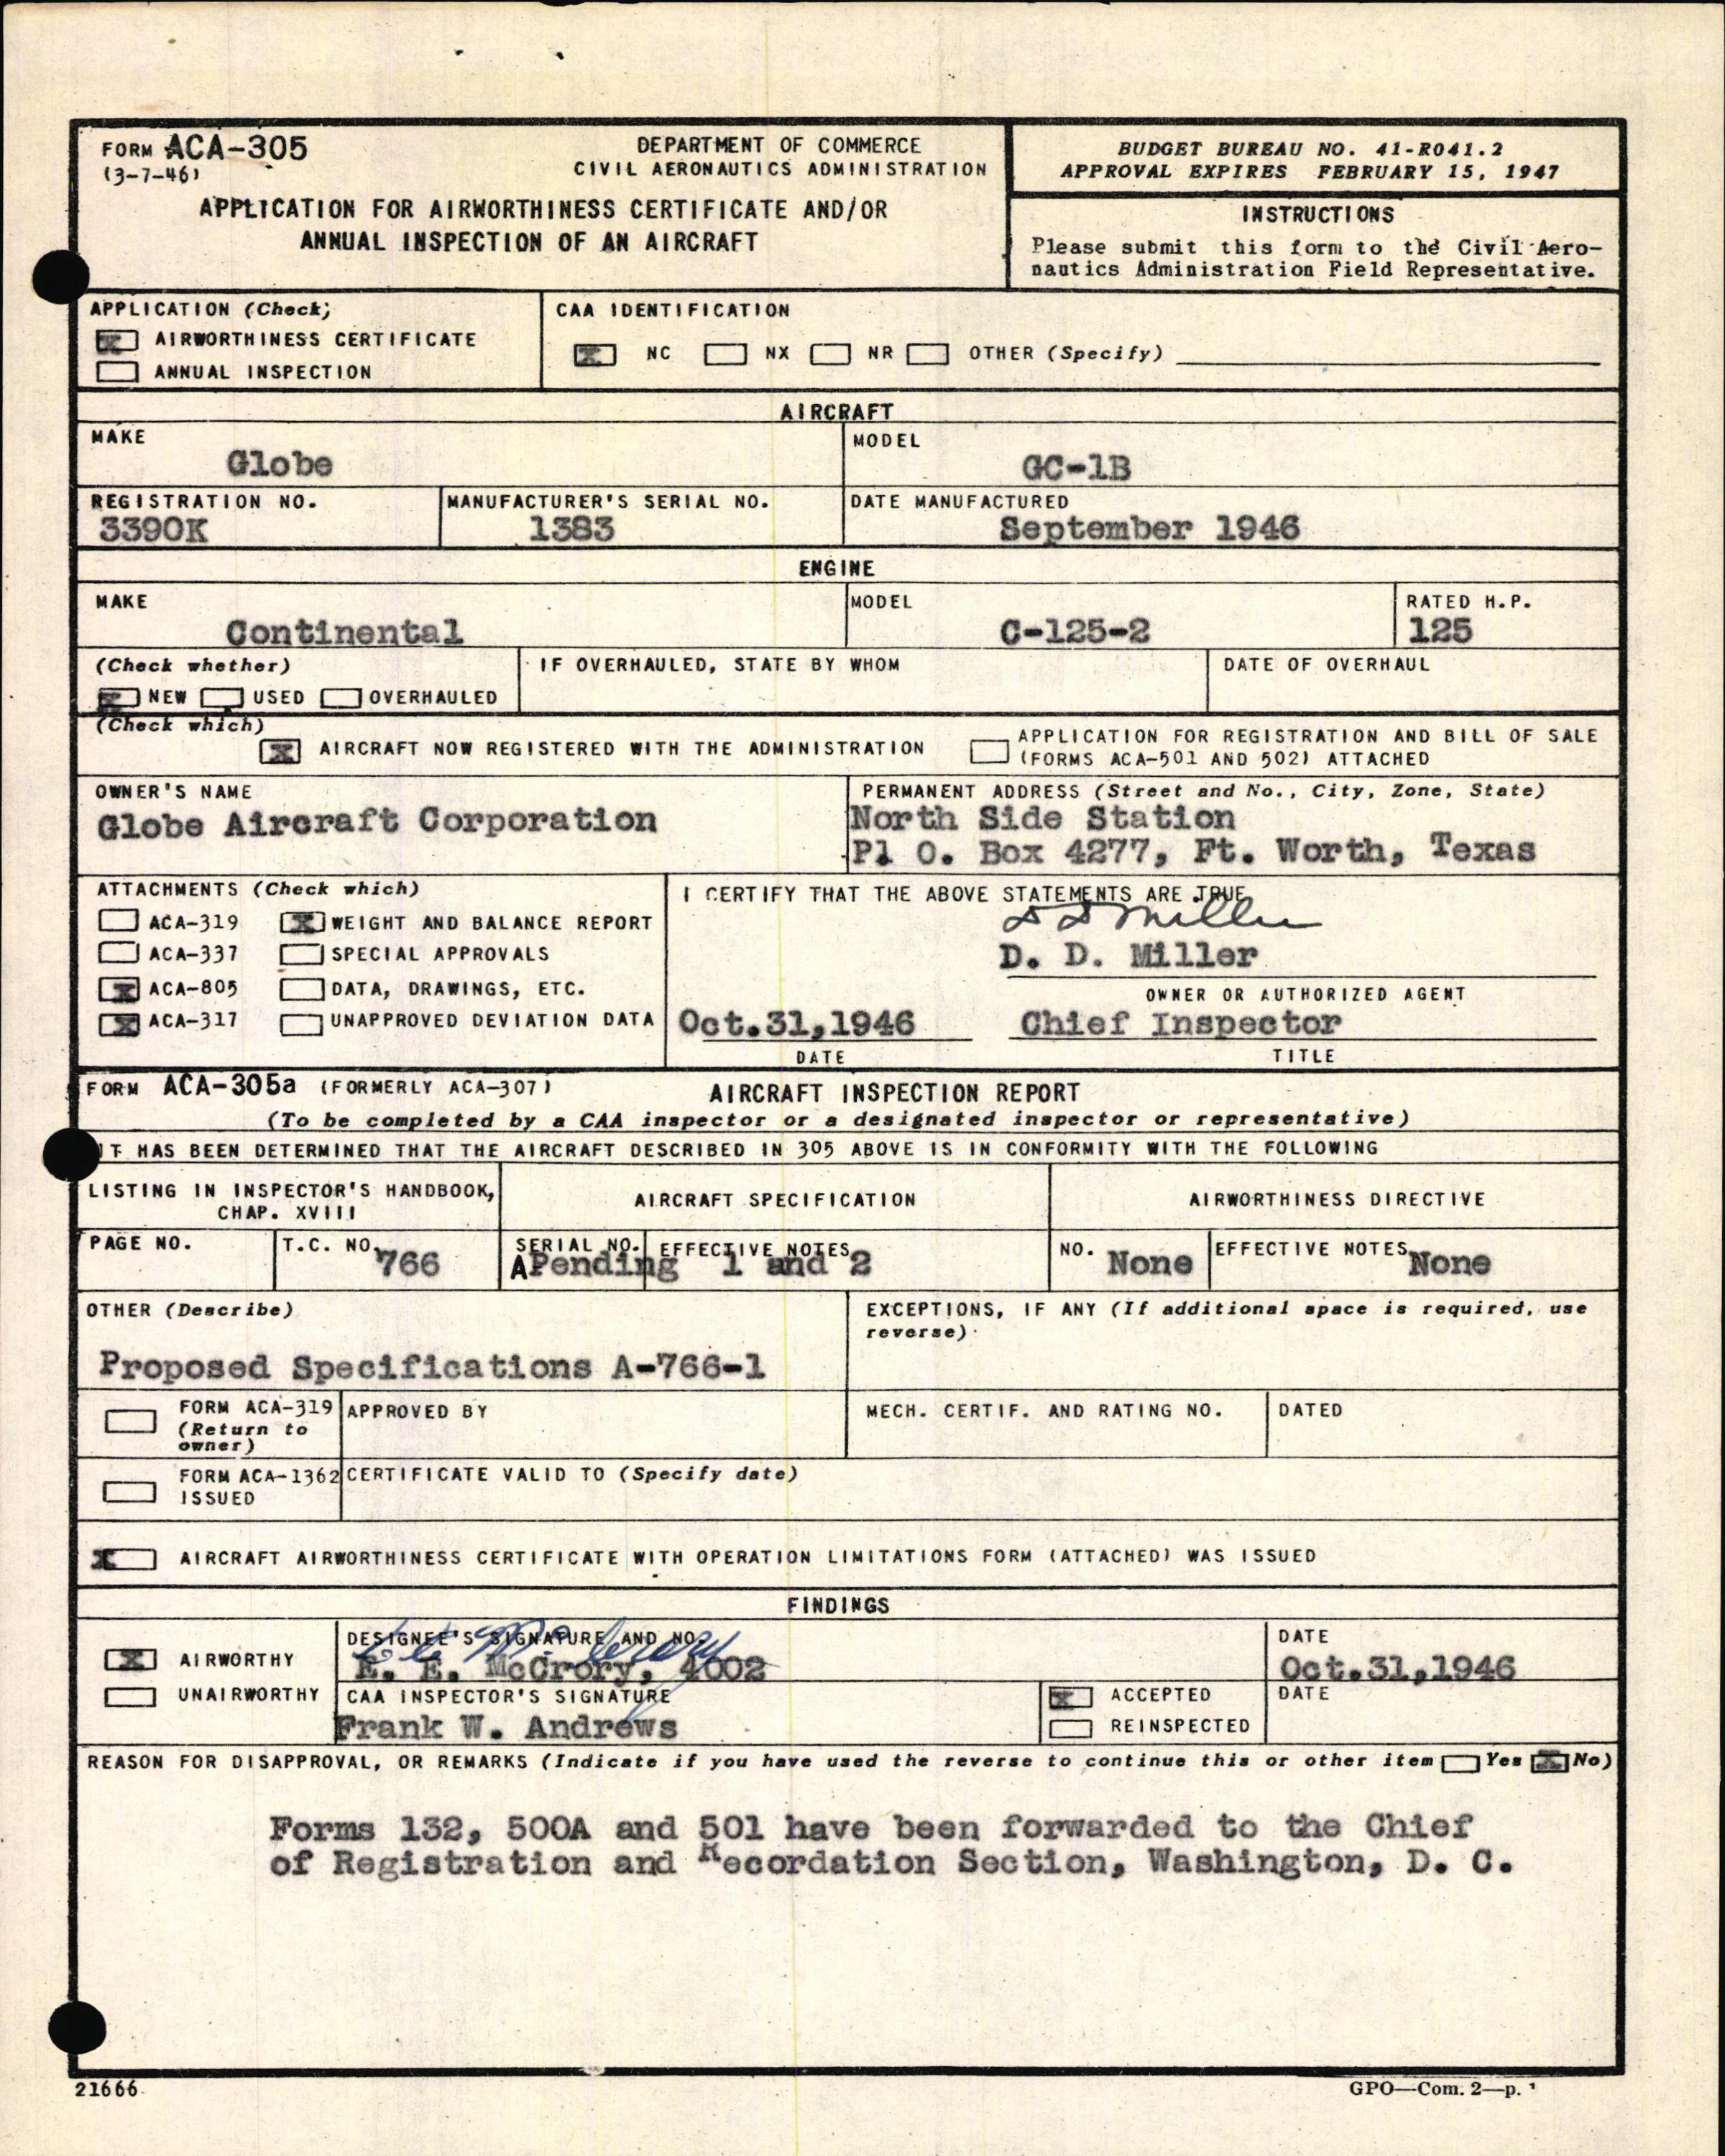 FORM ACA-305
(3-7-46)
DEPARTMENT OF COMMERCE
CIVIL AERONAUTICS ADMINISTRATION
APPLICATION FOR AIRWORTHINESS CERTIFICATE AND/OR
ANNUAL INSPECTION OF AN AIRCRAFT
BUDGET BUREAU NO. 41-R041.2
APPROVAL EXPIRES FEBRUARY 15, 1947
INSTRUCTIONS
Please submit this form to the Civil Aero-
nautics Administration Field Representative.
APPLICATION (Check)
X AIRWORTHINESS CERTIFICATE
ANNUAL INSPECTION
CAA IDENTIFICATION
X NC NX NR OTHER (Specify)
AIRCRAFT
MAKE
Globe
MODEL
GC-1B
REGISTRATION NO.
3390K
MANUFACTURER'S SERIAL NO.
1383
DATE MANUFACTURED
September 1946
ENGINE
MAKE
Continental
MODEL
C-125-2
RATED H.P.
125
(Check whether)
X NEW USED OVERHAULED
IF OVERHAULED, STATE BY WHOM
DATE OF OVERHAUL
(Check which)
X AIRCRAFT NOW REGISTERED WITH THE ADMINISTRATION
APPLICATION FOR REGISTRATION AND BILL OF SALE
(FORMS ACA-501 AND 502) ATTACHED
OWNER'S NAME
Globe Aircraft Corporation
PERMANENT ADDRESS (Street and No., City, Zone, State)
North Side Station
Pl O. Box 4277, Ft. Worth, Texas
ATTACHMENTS (Check which)
ACA-319 X WEIGHT AND BALANCE REPORT
ACA-337 SPECIAL APPROVALS
X ACA-805 DATA, DRAWINGS, ETC.
X ACA-317 UNAPPROVED DEVIATION DATA
I CERTIFY THAT THE ABOVE STATEMENTS ARE TRUE
D D Miller
D. D. Miller
OWNER OR AUTHORIZED AGENT
Oct.31,1946 Chief Inspector
DATE TITLE
FORM ACA-305a (FORMERLY ACA-307) AIRCRAFT INSPECTION REPORT
(To be completed by a CAA inspector or a designated inspector or representative)
IT HAS BEEN DETERMINED THAT THE AIRCRAFT DESCRIBED IN 305 ABOVE IS IN CONFORMITY WITH THE FOLLOWING
LISTING IN INSPECTOR'S HANDBOOK,
CHAP. XVIII
AIRCRAFT SPECIFICATION
AIRWORTHINESS DIRECTIVE
PAGE NO.
T.C. NO.
766
SERIAL NO.
APending
EFFECTIVE NOTES
1 and 2
NO.
None
EFFECTIVE NOTES
None
OTHER (Describe)
Proposed Specifications A-766-1
EXCEPTIONS, IF ANY (If additional space is required, use
reverse)
FORM ACA-319
(Return to
owner)
APPROVED BY
MECH. CERTIF. AND RATING NO.
DATED
FORM ACA-1362
ISSUED
CERTIFICATE VALID TO (Specify date)
X AIRCRAFT AIRWORTHINESS CERTIFICATE WITH OPERATION LIMITATIONS FORM (ATTACHED) WAS ISSUED
FINDINGS
X AIRWORTHY
UNAIRWORTHY
DESIGNEE'S SIGNATURE AND NO.
E. E. McCrory
E. E. McCrory, 4002
DATE
Oct.31,1946
CAA INSPECTOR'S SIGNATURE
Frank W. Andrews
X ACCEPTED
REINSPECTED
DATE
REASON FOR DISAPPROVAL, OR REMARKS (Indicate if you have used the reverse to continue this or other item Yes X No)
Forms 132, 500A and 501 have been forwarded to the Chief
of Registration and Recordation Section, Washington, D. C.
21666
GPO—Com. 2—p.